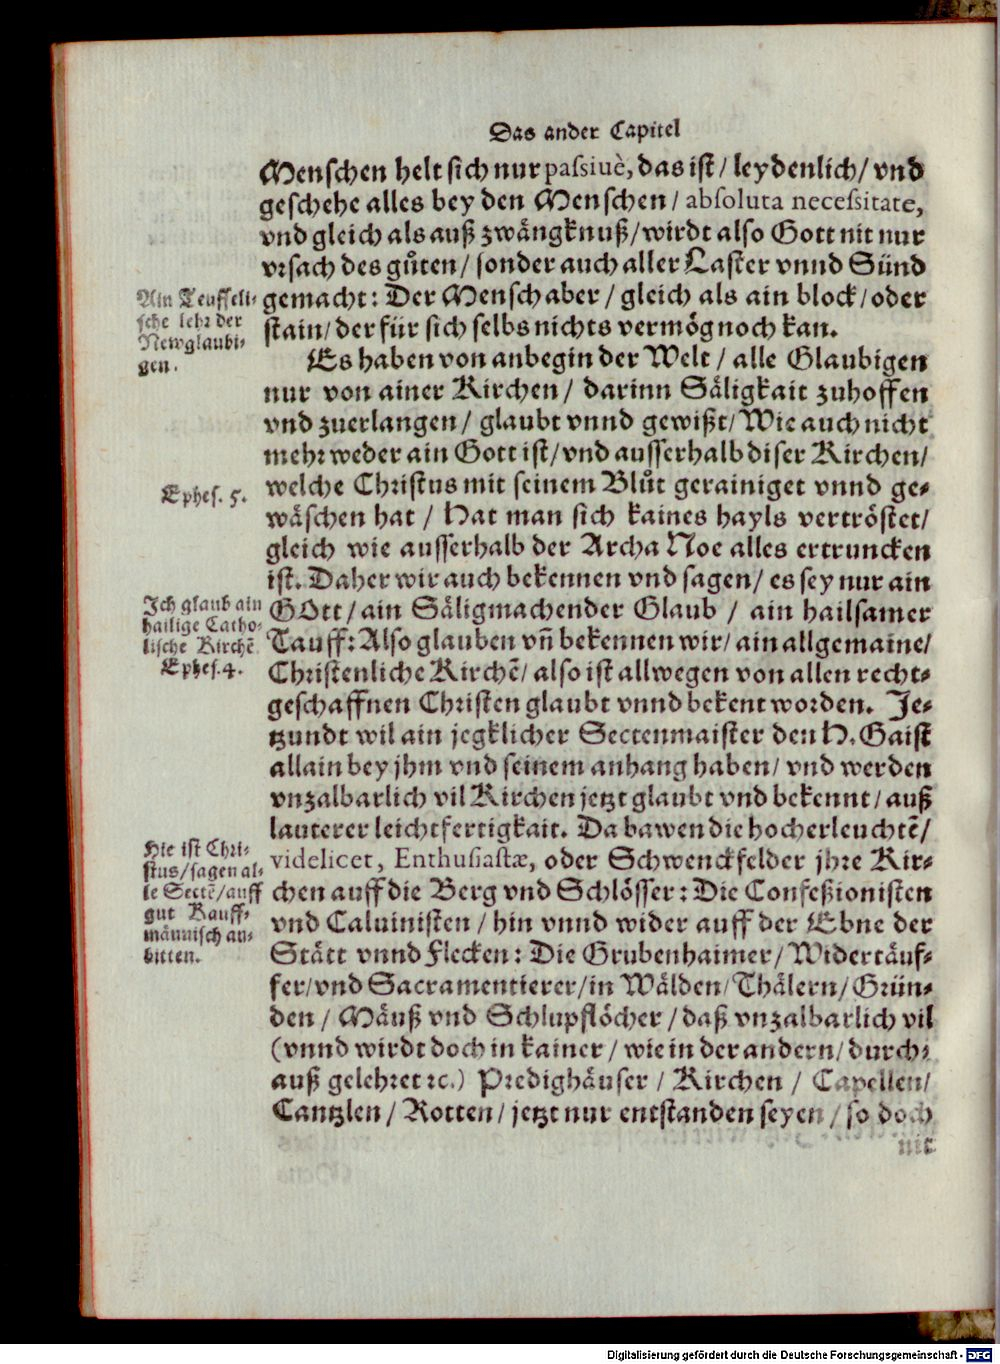 Das ander Capitel
Menschen helt sich nur passiuè, das ist / leydenlich / vnd
geschehe alles bey den Menschen / absoluta necessitate,
vnd gleich als auß zwångknuß / wirdt also Gott nit nur
vrsach des gůten / sonder auch aller Laster vnnd Sünd
gemacht: Der Mensch aber / gleich als ain block / oder
stain / der für sich selbs nichts vermög noch kan.
Ain Teuffeli-
sche lehr der
Newglaubi-
gen.
Es haben von anbegin der Welt / alle Glaubigen
nur von ainer Kirchen / darinn Säligkait zuhoffen
vnd zuerlangen / glaubt vnnd gewißt / Wie auch nicht
mehr weder ain Gott ist / vnd ausserhalb diser Kirchen /
welche Christus mit seinem Blůt gerainiget vnnd ge-
wäschen hat / Hat man sich kaines hayls vertröstet /
gleich wie ausserhalb der Archa Noe alles ertruncken
ist. Daher wir auch bekennen vnd sagen / es sey nur ain
GOtt / ain Säligmachender Glaub / ain hailsamer
Tauff: Also glauben vñ bekennen wir / ain allgemaine /
Christenliche Kirchẽ / also ist allwegen von allen recht-
geschaffnen Christen glaubt vnnd bekent worden. Je-
tzundt wil ain jegklicher Sectenmaister den H. Gaist
allain bey jhm vnd seinem anhang haben / vnd werden
vnzalbarlich vil Kirchen jetzt glaubt vnd bekennt / auß
lauterer leichtfertigkait. Da bawen die hocherleuchtẽ /
videlicet, Enthusiastæ, oder Schwenckfelder jhre Kir-
chen auff die Berg vnd Schlösser: Die Confeßionisten
vnd Caluinisten / hin vnnd wider auff der Ebne der
Stätt vnnd Flecken: Die Grubenhaimer / Widertäuf-
fer / vnd Sacramentierer / in Wälden / Thälern / Grün-
den / Mäuß vnd Schlupflöcher / daß vnzalbarlich vil
(vnnd wirdt doch in kainer / wie in der andern / durch-
auß gelehret ꝛc.) Predighäuser / Kirchen / Capellen /
Cantzlen / Rotten / jetzt nur entstanden seyen / so doch
nit
Ephes. 5.
Ich glaub ain
hailige Catho-
lische Kirchẽ
Ephes. 4.
Hie ist Chri-
stus / sagen al-
le Sectẽ / auff
gut Kauff-
männisch an-
bitten.
Digitalisierung gefördert durch die Deutsche Forschungsgemeinschaft - DFG